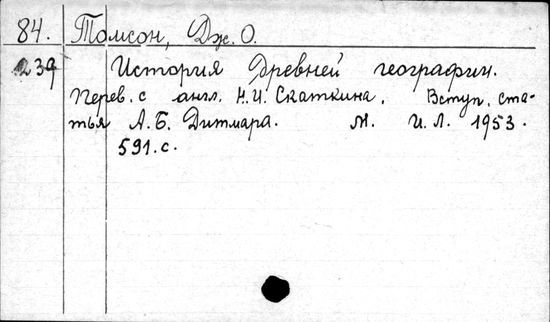 84. Томсон, Дж. О.
239 История древней географии.
Перев. с англ. Н.И. Скаткина. Вступ. ста-
тья А.Б. Дитмара. М. И.Л. 1953.
591. с.